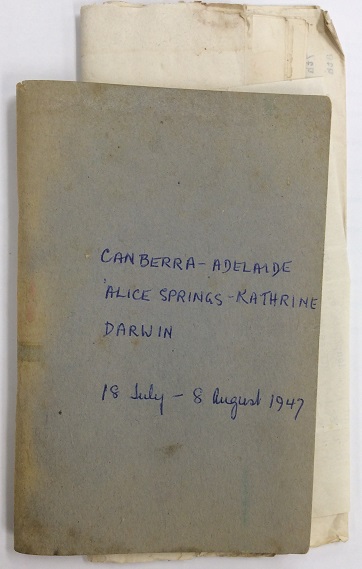 CANBERRA - ADELAIDE
ALICE SPRINGS - KATHRINE
DARWIN
18 July - 8 August 1947